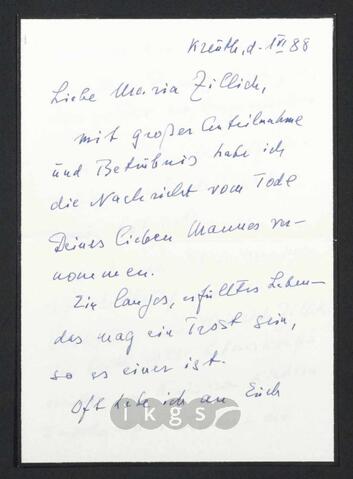 Kreuth, d. 1 VI 88
Liebe Maria Zillich,
mit großer Anteilnahme
und Betrübnis habe ich
die Nachricht vom Tode
Deines lieben Mannes ver-
nommen.
Ein langes, erfülltes Leben –
das mag ein Trost sein,
so es einer ist.
Oft habe ich an Euch
ikgs